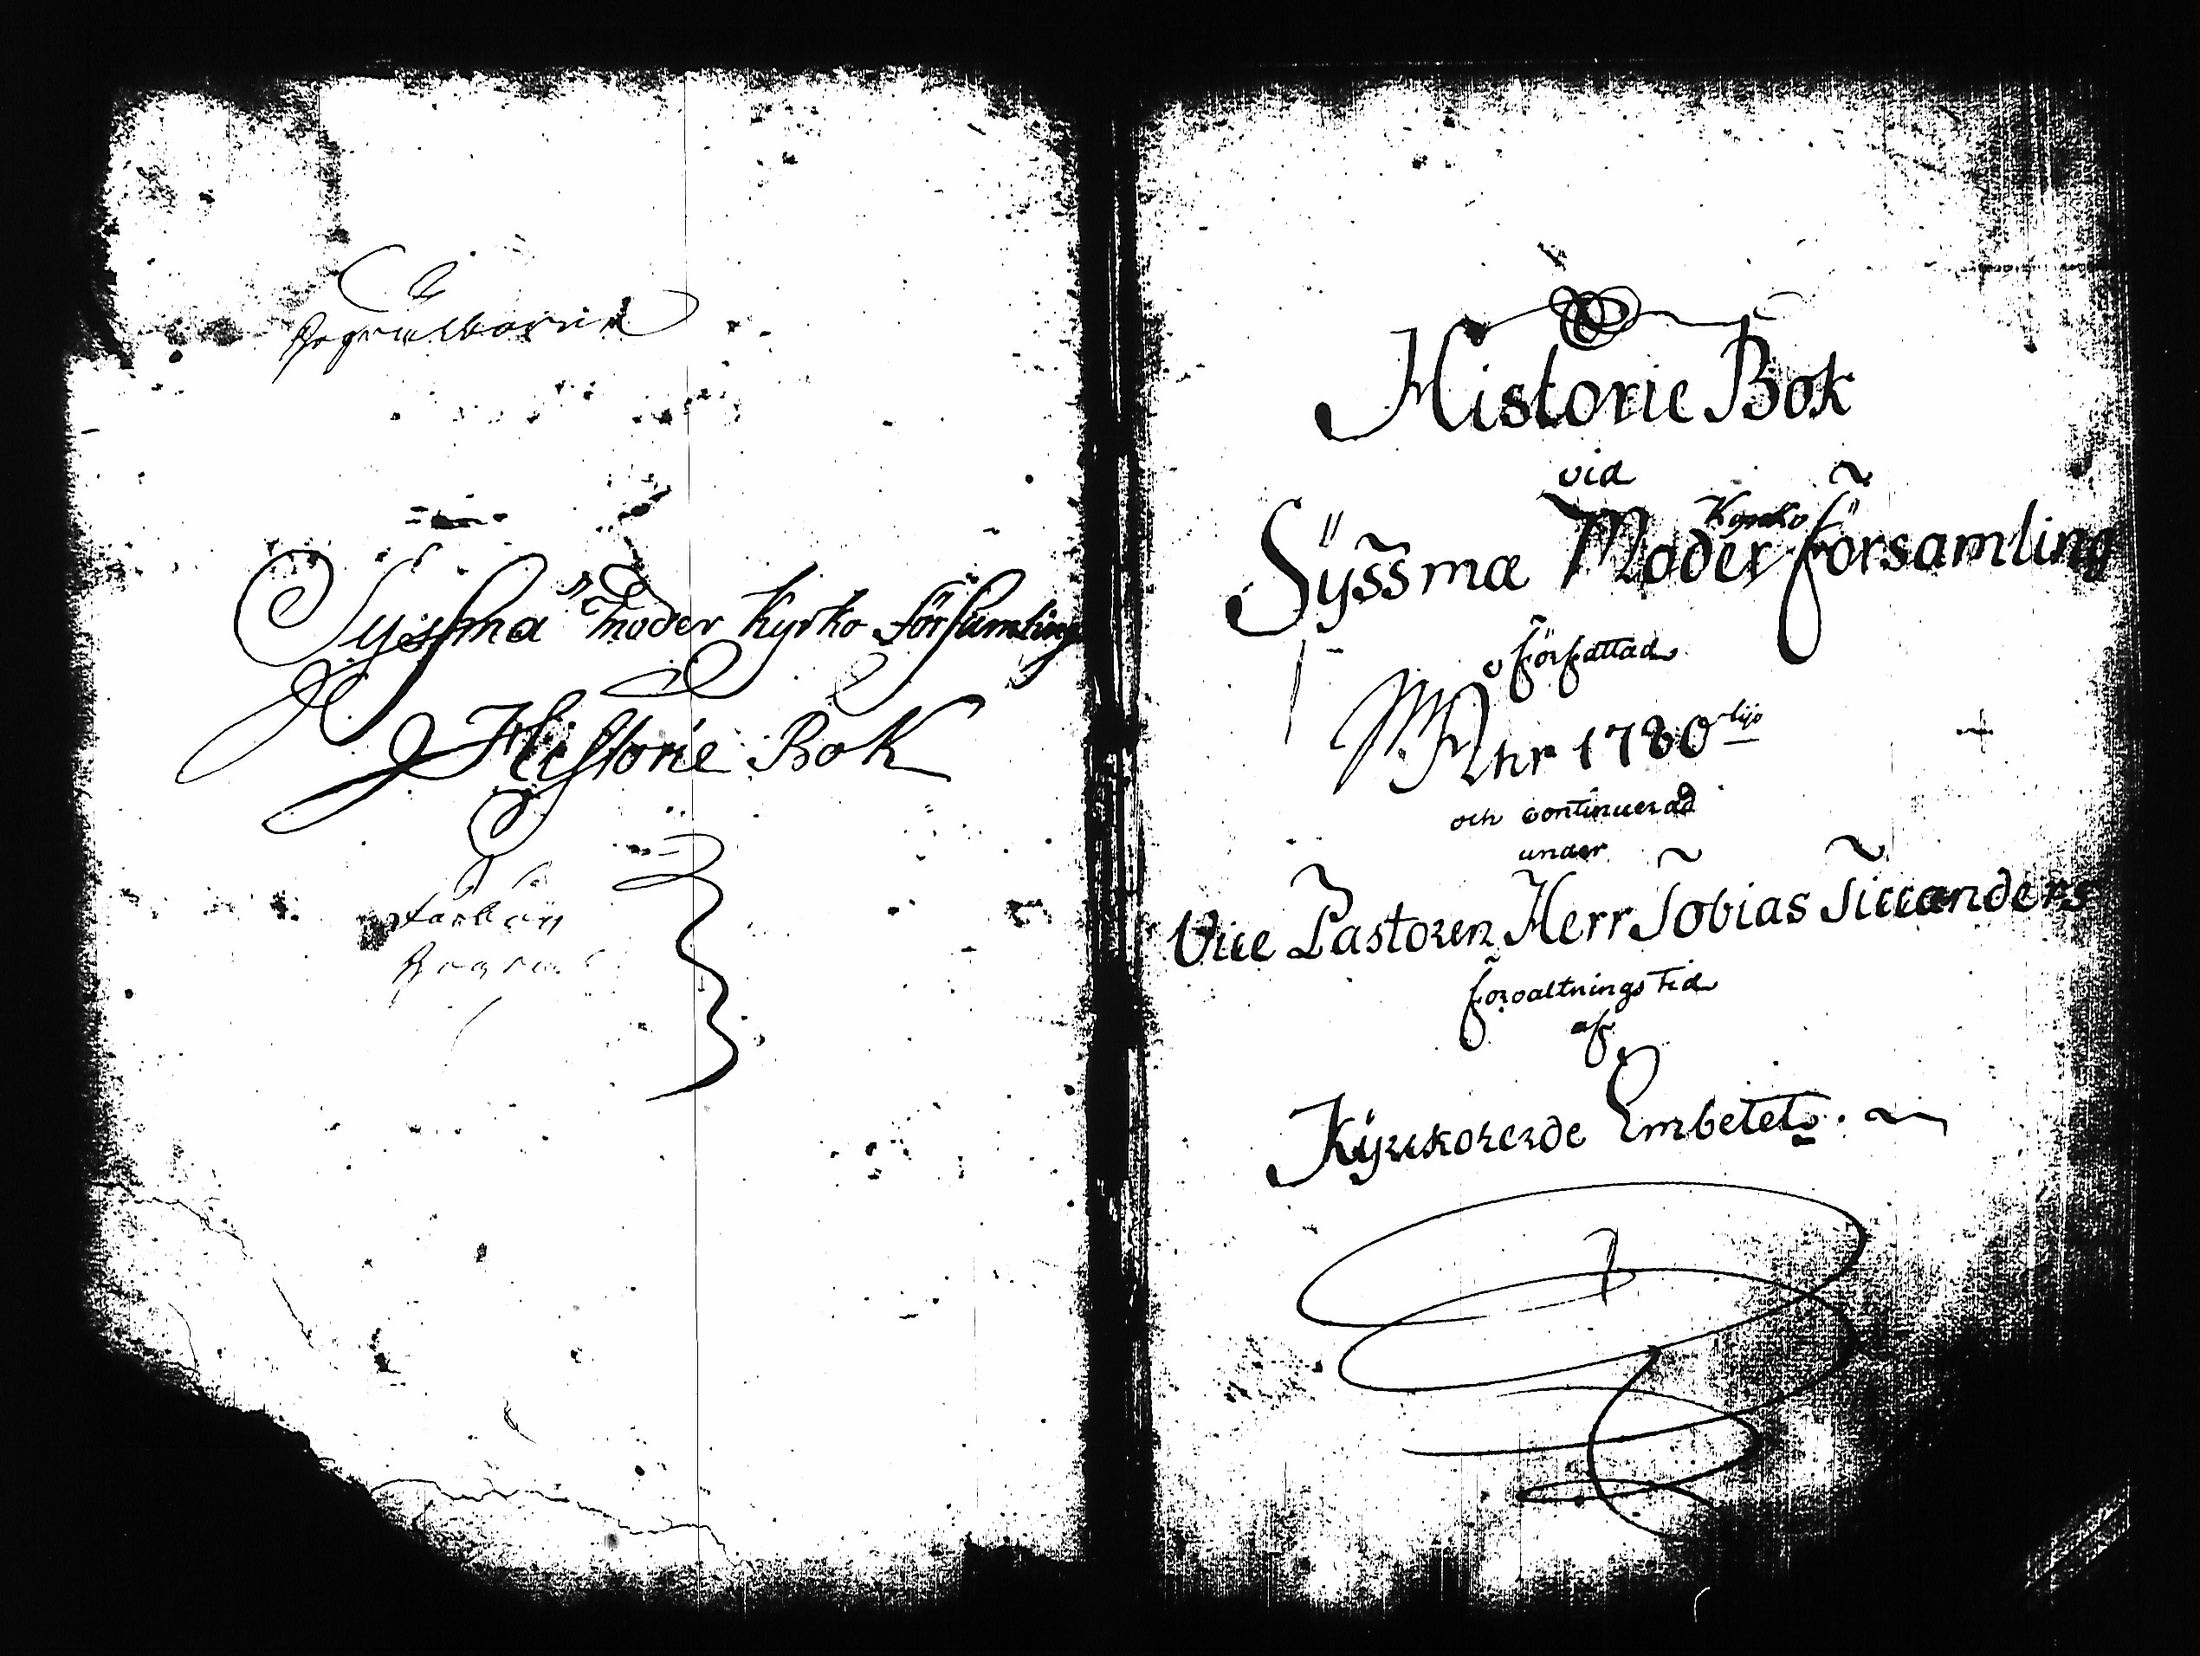 Syssma Moder Kyrko församling
Historie Bok
Historie Bok
vid
Kyrko
Sÿssmæ Moder församling
författad
Åhr 1780
och continuerad
under
Vice Pastoren Herr Tobias Ticcanders
förvaltnings Tid
af
Kÿrckoherde Embetet.